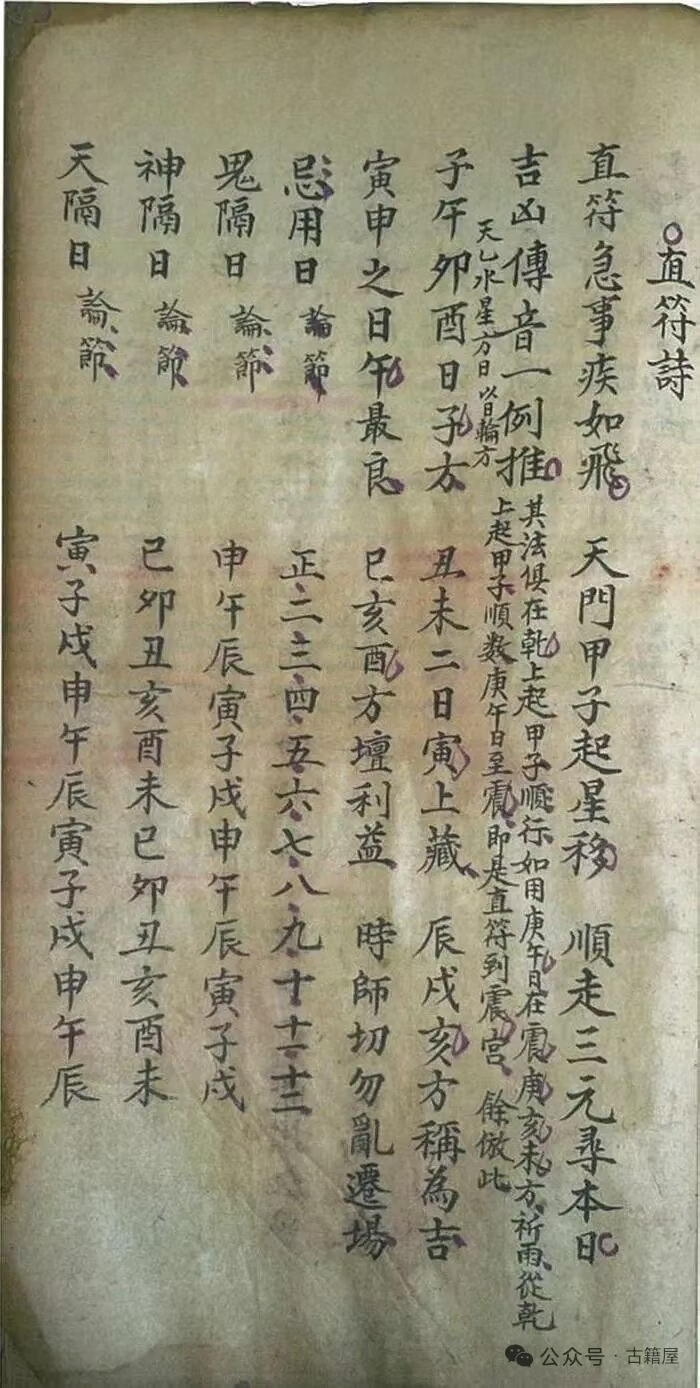 直符詩
直符急事疾如飛 天門甲子起星移 順走三元尋本日
吉凶傳音一例推 其法俱在乾上起甲子順行如用庚午日在震庚亥未方祈雨從乾
上起甲子順数庚午日至震即是直符到震宫 餘倣此
天乙水星方日 以日輪方
子午卯酉日子方 丑未二日寅上藏 辰戌亥方稱為吉
寅申之日午最良 巳亥酉方壇利益 時師切勿亂遷場
忌用日 論節 正二三四五六七八九十十一十二
鬼隔日 論節 申午辰寅子戌申午辰寅子戌
神隔日 論節 巳卯丑亥酉未巳卯丑亥酉未
天隔日 論節 寅子戌申午辰寅子戌申午辰
公众号·古籍屋